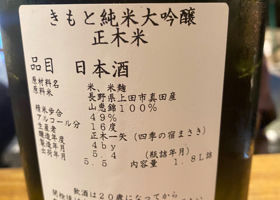 きもと純米大吟醸
正木米
品目 日本酒
原材料名 米、米麹
原料米 長野県上田市真田産
山恵錦100%
精米歩合 49%
アルコール分 16度
生産者 正木一矢(四季の宿まさき)
醸造年度 4by
製造年月 5.4 (瓶詰年月)
出荷年月 5.5 内容量 1.8L詰
飲酒は20歳になってから